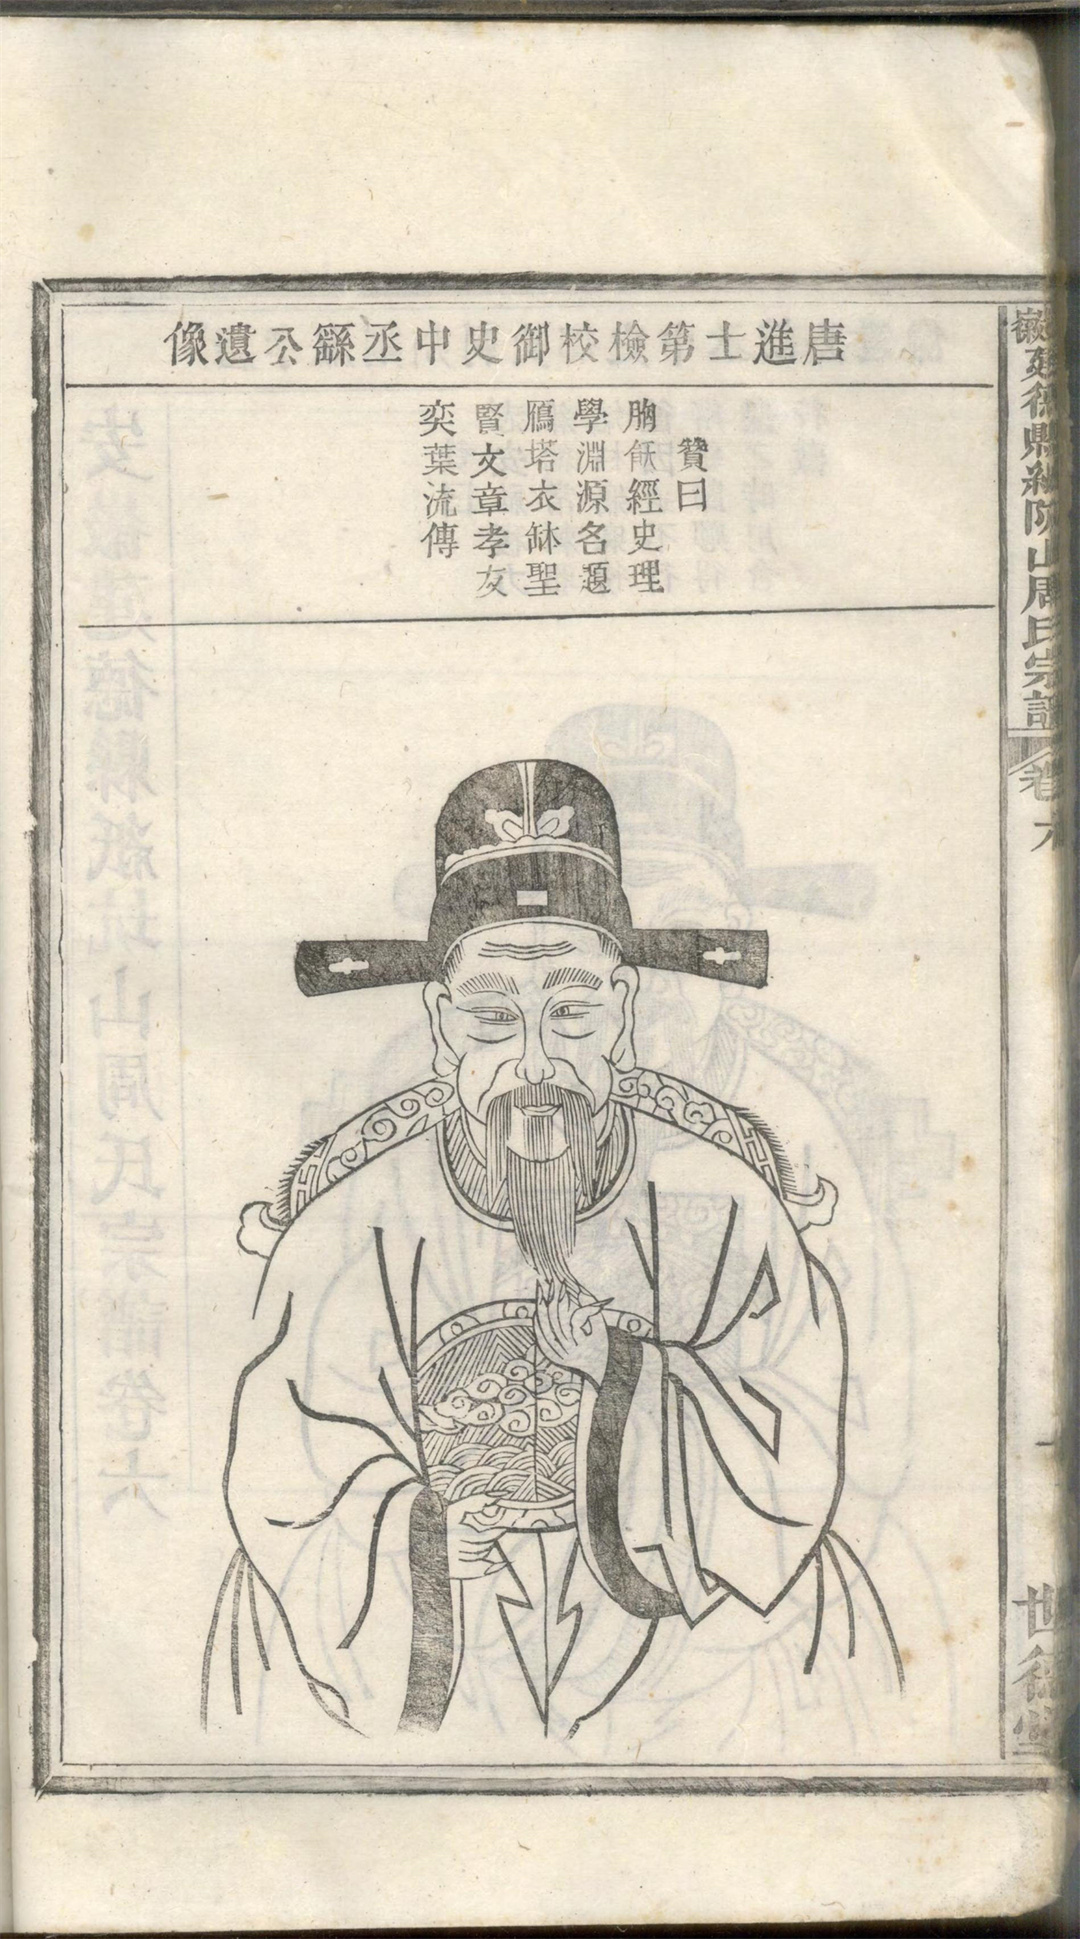 唐進士第檢校御史中丞繇公遺像
贊曰
胸飫經史理
學淵源名題
鴈塔衣缽聖
賢文章孝友
奕葉流傳
徽建德縣紙阬山周氏宗譜
卷六
世德堂